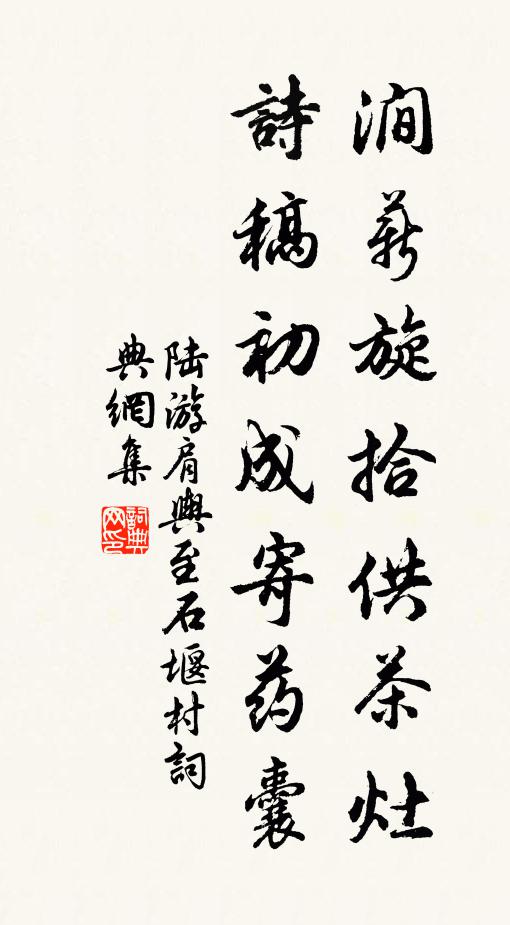 澗薪旋拾供茶灶
詩稿初成寄药囊
陆游肩輿至石堰村詞
典網集
詞典网印